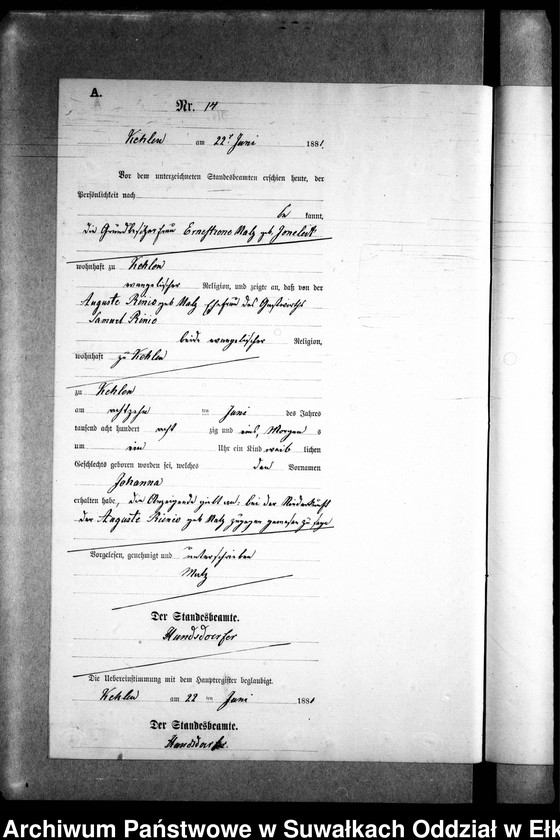 A.
Nr. 14
Kehlen am 22t Juni 1881
Vor dem unterzeichneten Standesbeamten erschien heute, der
Persönlichkeit nach
be kannt,
die Grundbesitzerfrau Ernestine Matz geb.
wohnhaft zu Kehlen
evangelischer Religion, und zeigte an, daß von der
Auguste Rinio geb Matz Ehefrau des Gastwirths
Samuel Rinio
beide evangelischer Religion,
wohnhaft zu Kehlen
zu Kehlen
am achtzehn ten Juni des Jahres
tausend acht hundert acht zig und eins, Morgens
um ein Uhr ein Kind weib lichen
Geschlechts geboren worden sei, welches den Vornamen
Johanna
erhalten habe, die Anzeigende giebt an: bei der Niederkunft
der Auguste Rinio geb Matz zugegen gewesen zu sein
Vorgelesen, genehmigt und unterschrieben
Matz
Der Standesbeamte.
Hundsdoerfer
Die Uebereinstimmung mit dem Hauptregister beglaubigt.
Kehlen am 22 ten Juni 1881
Der Standesbeamte.
Hundsdoerfer
Archiwum Państwowe w Suwałkach Oddział w Ełk